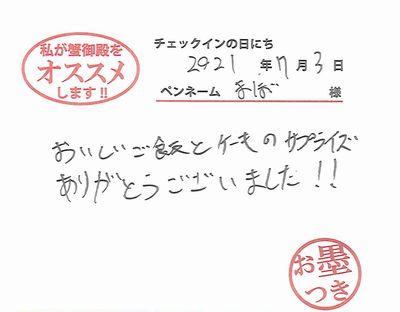 私が蟹御殿を
オススメ
します!!
チェックインの日にち
2021年7月3日
ペンネーム まぼ 様
おいしいご飯とケーキのサプライズ
ありがとうございました!!
お墨
つき